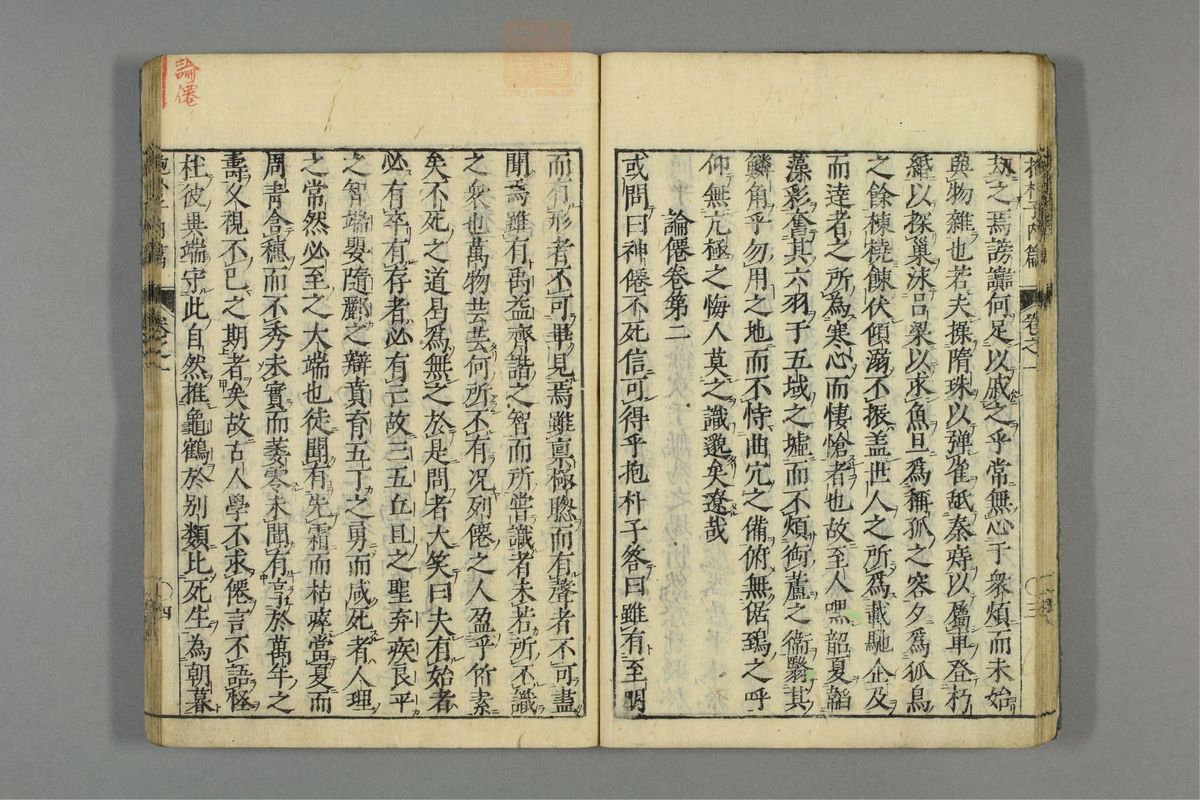 抱朴子内篇 卷之一 三
劫之焉謗讟何足以戚之乎常無心于衆煩而未始
與物雜也若夫操隋珠以弾雀舐秦痔以屬車登朽
緡以探巢泳吕梁以求魚旦爲稱孤之容夕爲狐鳥
之餘棟撓餗伏傾溺不振盖世人之所爲載馳企及
而達者之所為寒心而悽愴者也故至人嘿韶夏韜
藻彩奮其六羽于五城之墟而不煩衘蘆之衞翳其
鱗角乎勿用之地而不恃曲穴之備俯無倨鵄之呼
仰無亢極之悔人莫之識邈矣遼哉
論僊卷第二
或問曰神僊不死信可得乎抱朴子答曰雖有至明
而有形者不可畢見焉雖禀極聦而有聲者不可盡
聞焉雖有禹益齊諧之智而所嘗識者未若所不識
之衆也萬物芸芸何所不有况列僊之人盈乎竹素
矣不死之道曷爲無之於是問者大笑曰夫有始者
必有卒有存者必有亡故三五丘旦之聖弃疾良平
之智端嬰隨酈之辯賁育五丁之勇而咸死者人理
之常然必至之大端也徒聞有先霜而枯瘁當夏而
凋青含穗而不秀未實而萎零未聞有享於萬年之
壽久視不已之期者矣故古人學不求僊言不語怪
杜彼異端守此自然推龜鶴於别類比死生為朝暮
抱朴子内篇 卷之一 四
論僊